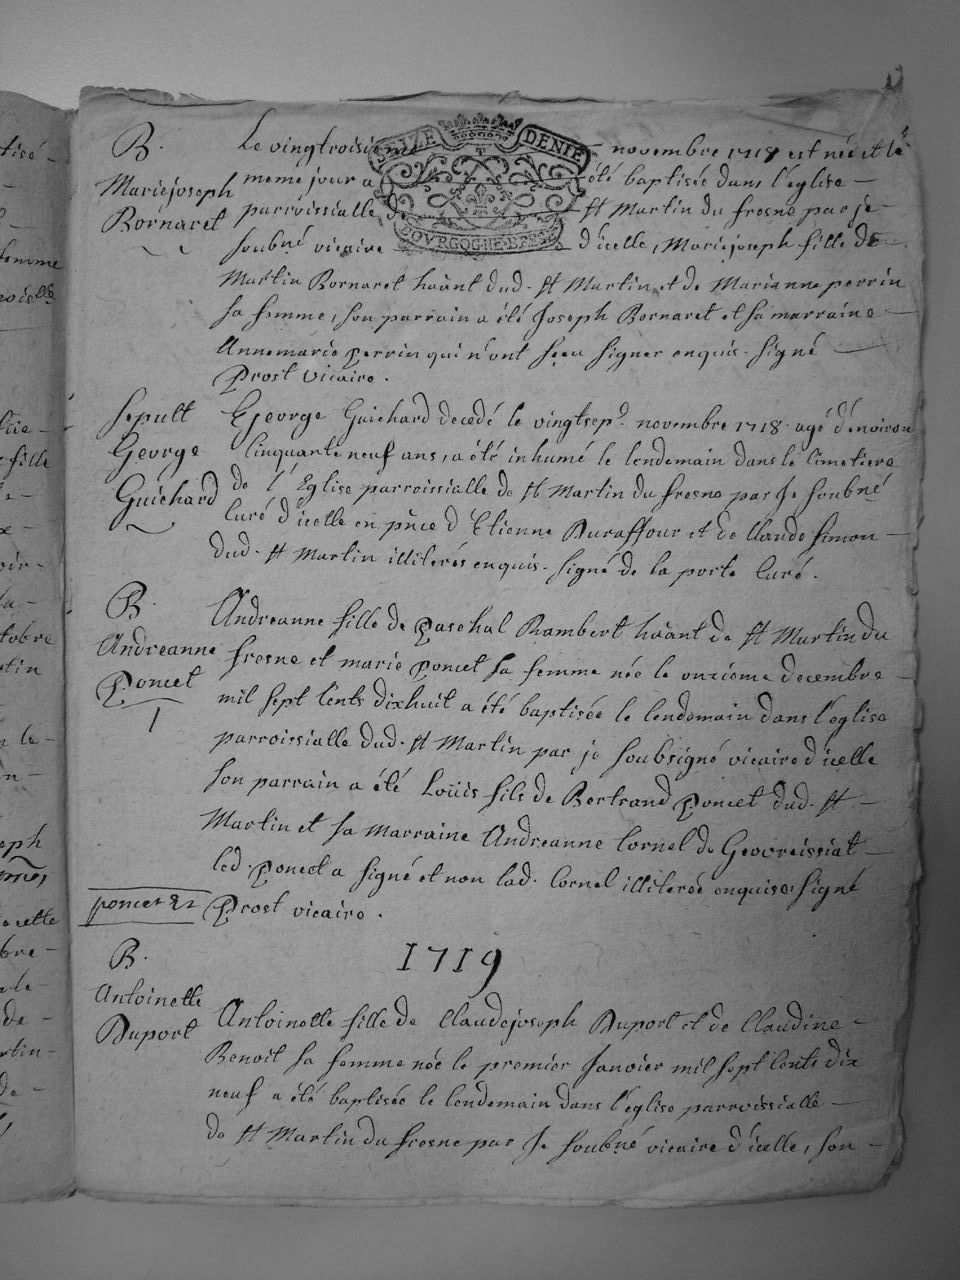 B.
Mariejoseph
Bornaret
Le vingtroisie
SEIZE DENIE
BOVRGOGNE BRESSE
novembre 1718 est née et le
meme jour a été baptisée dans l'église
parroissialle de St Martin du fresne par je
soubné vicaire d'icelle, Mariejoseph fille de
Martin Bornaret hãant dud. St Martin et de Marianne perrin
sa femme, son parrain a été Joseph Bornaret et sa marraine
Annemarie perrin qui n'ont sceu signer enquis. signé
Prost vicaire.
sepult
George
Guichard
George Guichard decedé le vingtsep.e novembre 1718. agé d'environ
cinquante neuf ans, a été inhumé le lendemain dans le cimetiere
de l'Eglise parroissialle de St Martin du fresne par Je soubné
curé d'icelle en pñce d'Etienne Duraffour et de Claude Simon
dud. St Martin illiterés enquis. signé de la porte curé.
B.
Andreanne
Poncet
Andreanne fille de Paschal Rambert hãant de St Martin du
fresne et marie poncet sa femme née le onzieme decembre
mil sept cents dixhuit a été baptisée le lendemain dans l'église
parroissialle dud. St Martin par je soubsigné vicaire d'icelle
son parrain a été Loüis fils de Bertrand Poncet dud. St
Martin et sa Marraine Andreanne Cornel de Geovreissiat
led. Poncet a signé et non lad. Cornel illiterée enquise. signé
poncet
Prost vicaire.
1719
B.
Antoinette
Duport
Antoinette fille de Claudejoseph Duport et de Claudine
Benoit sa femme née le premier Janvier mil sept cents dix
neuf a été baptisée le lendemain dans l'église parroissialle
de St Martin du fresne par Je soubné vicaire d'icelle, son